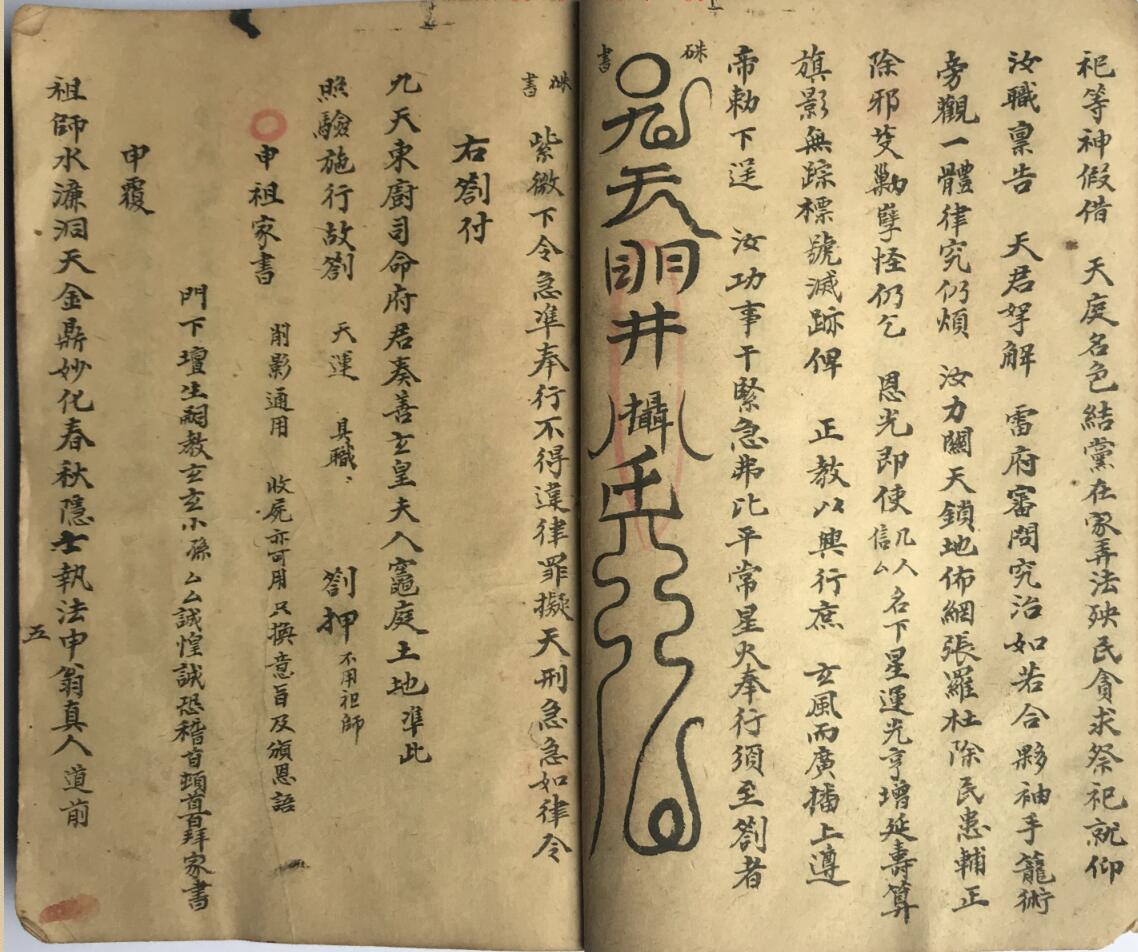 祀等神假借　天庭名色結黨在家弄法殃民貪求祭祀就仰
汝職稟告　天君拏解　雷府審問究治如若合夥袖手籠術
旁觀一體律究仍煩　汝力關天鎖地佈網張羅杜除民患輔正
除邪芟勦孽怪仍乞　恩光即使几人信厶名下星運光亨增延壽算
旗影無踪標號滅跡俾　正教以興行庶　玄風而廣播上遵
帝勅下逞　汝功事干緊急弗比平常星火奉行須至劄者
硃書
九天開井攝
硃書
紫微下令急準奉行不得違律罪擬天刑急急如律令
右劄付
九天東廚司命府君奏善玄皇夫人竈庭土地準此
照驗施行故劄　天運　具職、　劄押不用祖師
申祖家書　削影通用　收屍亦可用只換意旨及頒恩語
門下壇生嗣教玄玄小孫厶厶誠惶誠恐稽首頓首百拜家書
申覆
祖師水濂洞天金鼎妙化春秋隱士執法申翁真人道前
五